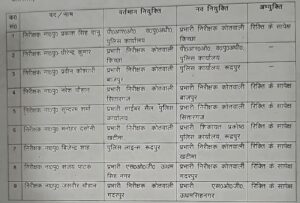 क्र0 सं0 पद / नाम वर्तमान नियुक्ति नव नियुक्ति अभ्युक्ति
1 निरीक्षक ना0पु0 प्रकाश सिंह दानू पी0आर0ओ0 व0पु0अ0, पुलिस कार्यालय प्रभारी निरीक्षक कोतवाली किच्छा रिक्ति के सापेक्ष
2 निरीक्षक ना0पु0 धीरेन्द्र कुमार प्रभारी निरीक्षक कोतवाली किच्छा पुलिस कार्यालय —
3 निरीक्षक ना0पु0 प्रवीण कोश्यारी प्रभारी निरीक्षक कोतवाली बाजपुर पुलिस कार्यालय रूद्रपुर —
4 निरीक्षक ना0पु0 नरेश चौहान प्रभारी निरीक्षक कोतवाली सितारगंज प्रभारी निरीक्षक कोतवाली बाजपुर रिक्ति के सापेक्ष
5 निरीक्षक ना0पु0 सुन्दरम शर्मा प्रभारी साईबर सैल पुलिस कार्यालय प्रभारी निरीक्षक कोतवाली सितारगंज रिक्ति के सापेक्ष
6 निरीक्षक ना0पु0 मनोहर दसौनी प्रभारी निरीक्षक कोतवाली खटीमा प्रभारी शिकायत प्रकोष्ठ पुलिस कार्यालय, रूद्रपुर रिक्ति के सापेक्ष
7 निरीक्षक ना0पु0 विजेन्द्र शाह पुलिस लाइन रूद्रपुर प्रभारी निरीक्षक कोतवाली खटीमा रिक्ति के सापेक्ष
8 निरीक्षक ना0पु0 संजय पाठक प्रभारी एस0ओ0जी0 ऊधम सिंह नगर प्रभारी निरीक्षक कोतवाली गदरपुर रिक्ति के सापेक्ष
9 निरीक्षक ना0पु0 जसवीर चौहान प्रभारी निरीक्षक कोतवाली गदरपुर प्रभारी एस0ओ0जी0 ऊधमसिंहनगर रिक्ति के सापेक्ष